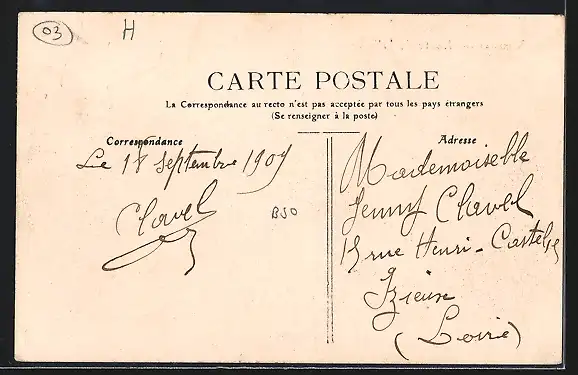 03
H
CARTE POSTALE
La Correspondance au recto n'est pas acceptée par tous les pays étrangers
(Se renseigner à la poste)
Correspondance
Le 18 Septembre 1907
Clavel
B50
Adresse
Mademoiselle
Jenny Clavel
15 rue Henri-Castels
Izieux
(Loire)